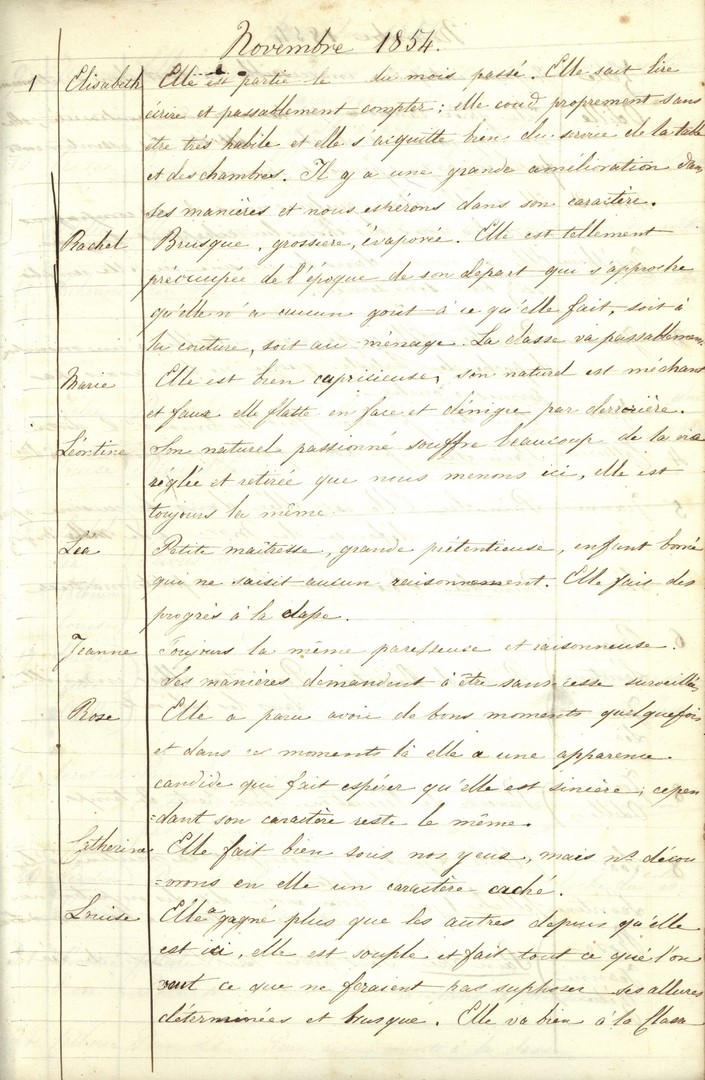 Novembre 1854.
1 Elisabeth Elle est partie le du mois passé. Elle sait lire
écrire et passablement compter ; elle coud proprement sans
être très habile et elle s'aiquitte bien du service de la table
et des chambres. Il y a une grande amélioration dans
ses manières et nous espérons dans son caractère.
Rachel Brusque, grossière, évaporée. Elle est tellement
préocupée de l'époque de son départ qui s'approche
qu'elle n'a aucun goût à ce qu'elle fait, soit à
la couture, soit au ménage. La classe va passablement
Marie Elle est bien capricieuse, son naturel est méchant
et faux elle flatte en face et dénigre par derrière.
Léontine Son naturel passionné souffre beaucoup de la vie
réglée et retirée que nous menons ici, elle est
toujours la même
Léa Petite maîtresse, grande prétentieuse, enfant borné
qui ne saisit aucun raisonnement. Elle fait des
progrès à la classe.
Jeanne Toujours la même paresseuse et raisonneuse.
Ses manières demandent à être sans cesse surveillées
Rose Elle a paru avoir de bons moments quelquefois
et dans ces moments là elle a une apparence
candide qui fait espérer qu'elle est sincère ; cepen
=dant son caractère reste le même.
Catherine Elle fait bien sous nos yeux, mais ns décou
=vrons en elle un caractère caché.
Louise Elle a gagné plus que les autres depuis qu'elle
est ici, elle est souple et fait tout ce que l'on
veut ce que ne feraient pas supposer ses allures
déterminées et brusque. Elle va bien à la classe